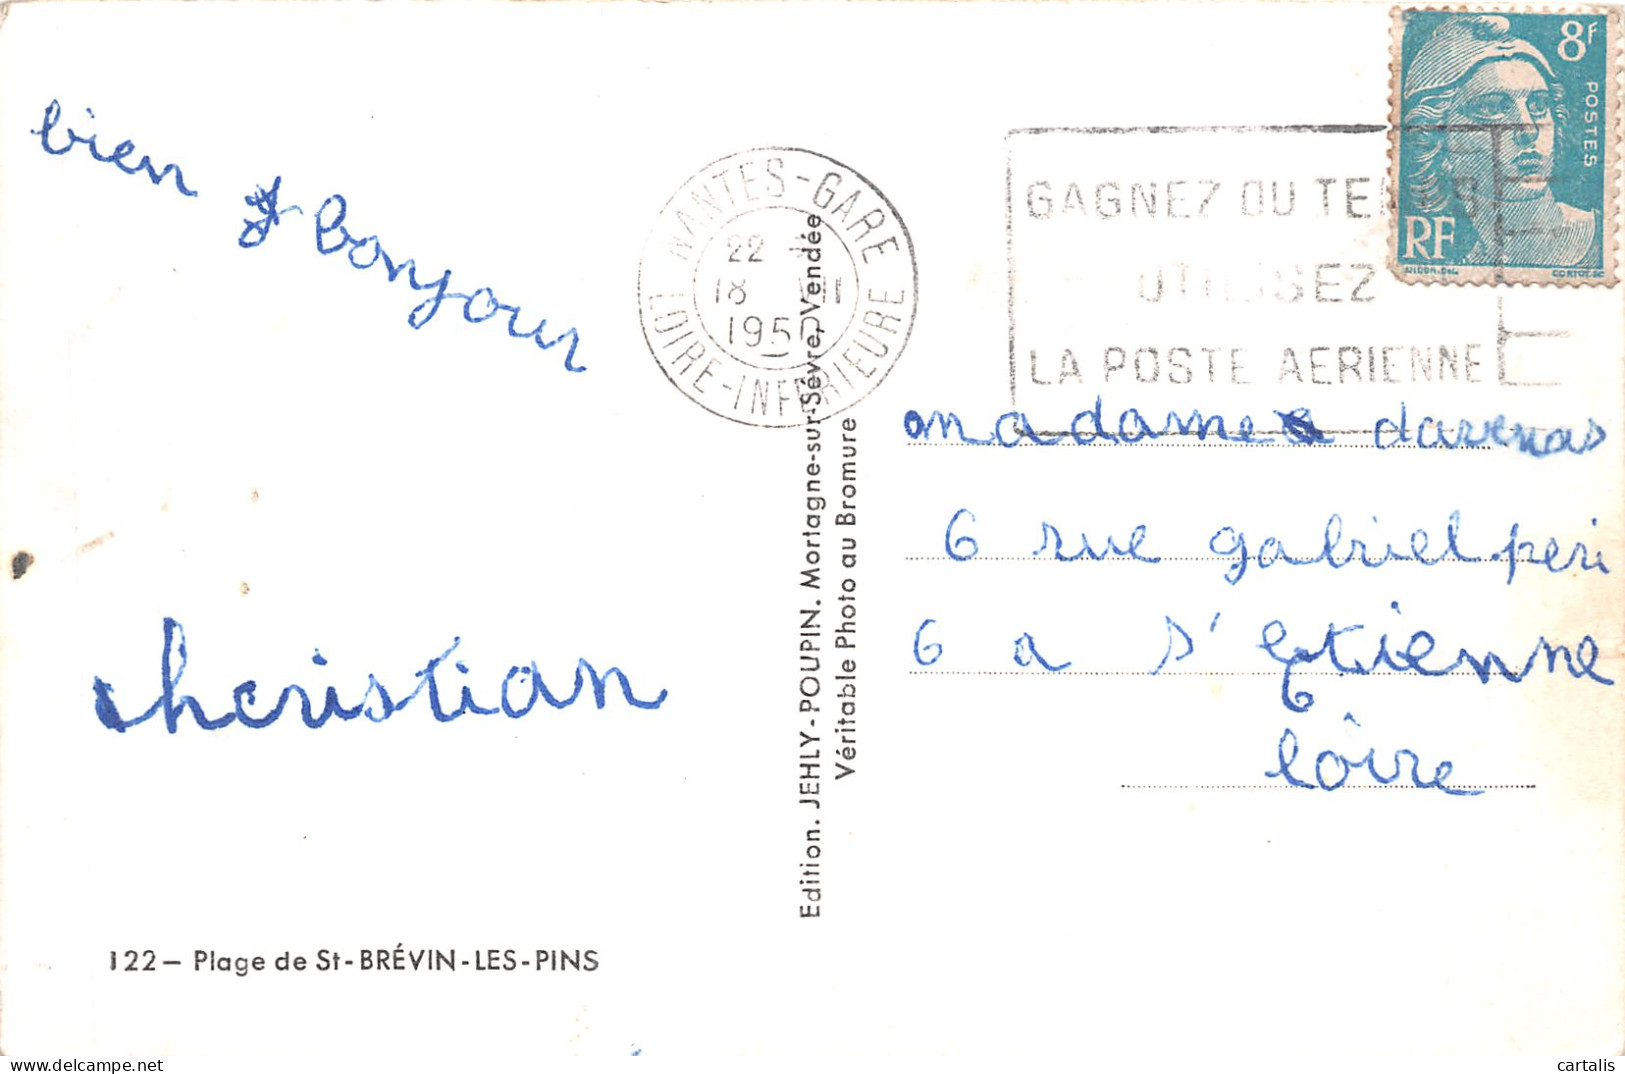 bien bonjour
cheristian
122 – Plage de St-BRÉVIN-LES-PINS
Edition. JEHLY-POUPIN. Mortagne-sur-Sèvre, Vendée
Véritable Photo au Bromure
NANTES-GARE
22
18
195
LOIRE-INFERIEURE
GAGNEZ DU TEMPS
UTILISEZ
LA POSTE AERIENNE
8F
POSTES
RF
CORTOT.SC
madame davenas
6 rue gabriel peri
6 a s' etienne
loire
cartalis